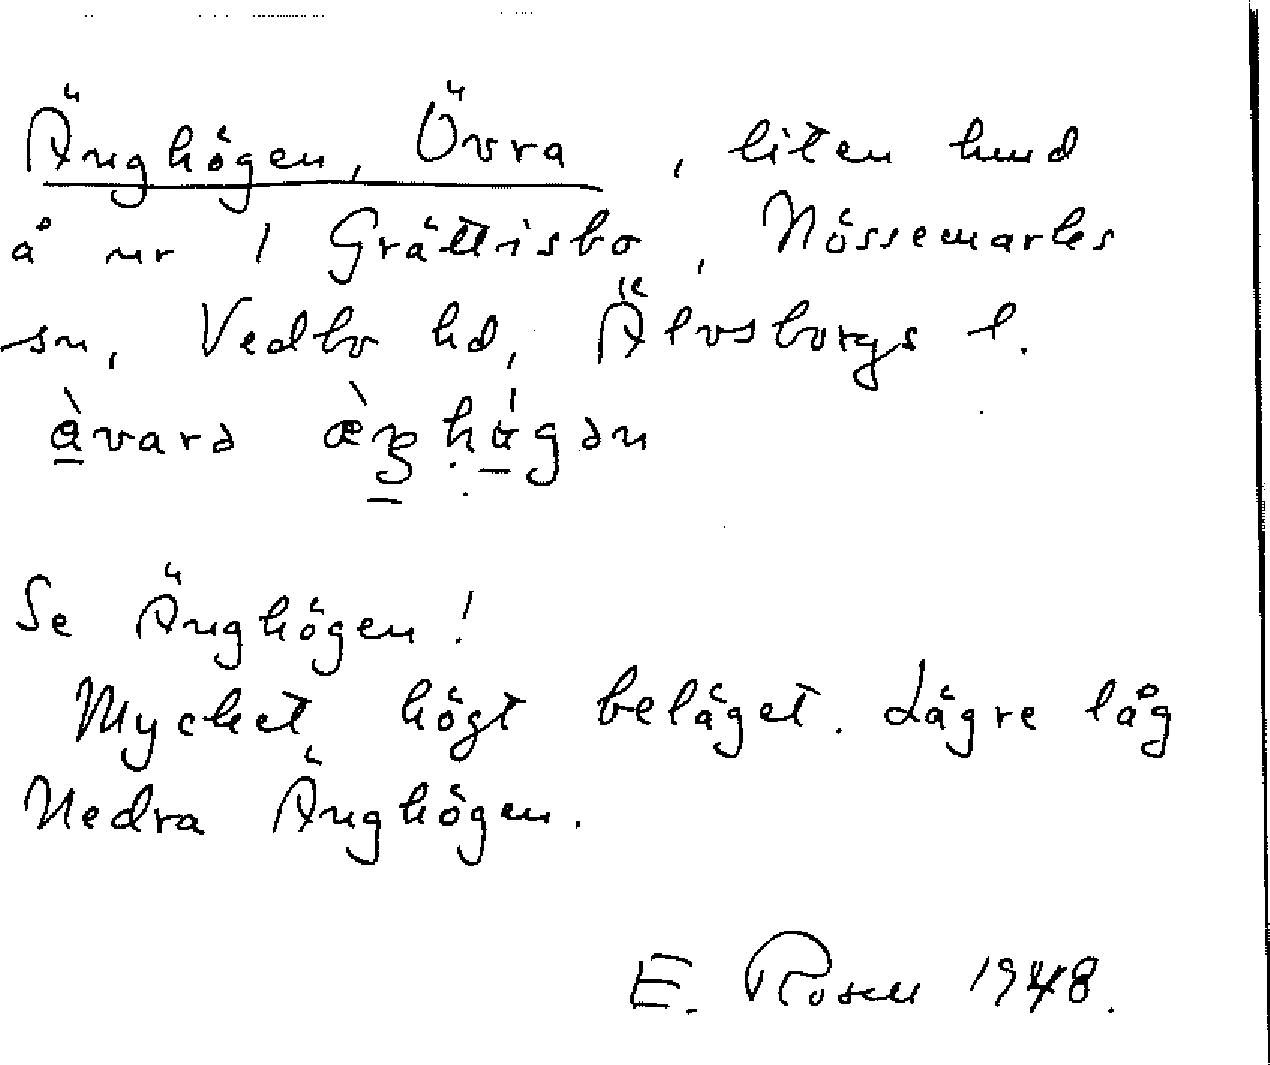 Änghögen, Övra, liten hmd
å nr 1 Grättisbo, Nössemarks
sn, Vedbo hd, Älvsborgs l.
Se Änghögen!
Mycket högt beläget. Lägre låg
Nedra Änghögen.
E. Rosen 1948.